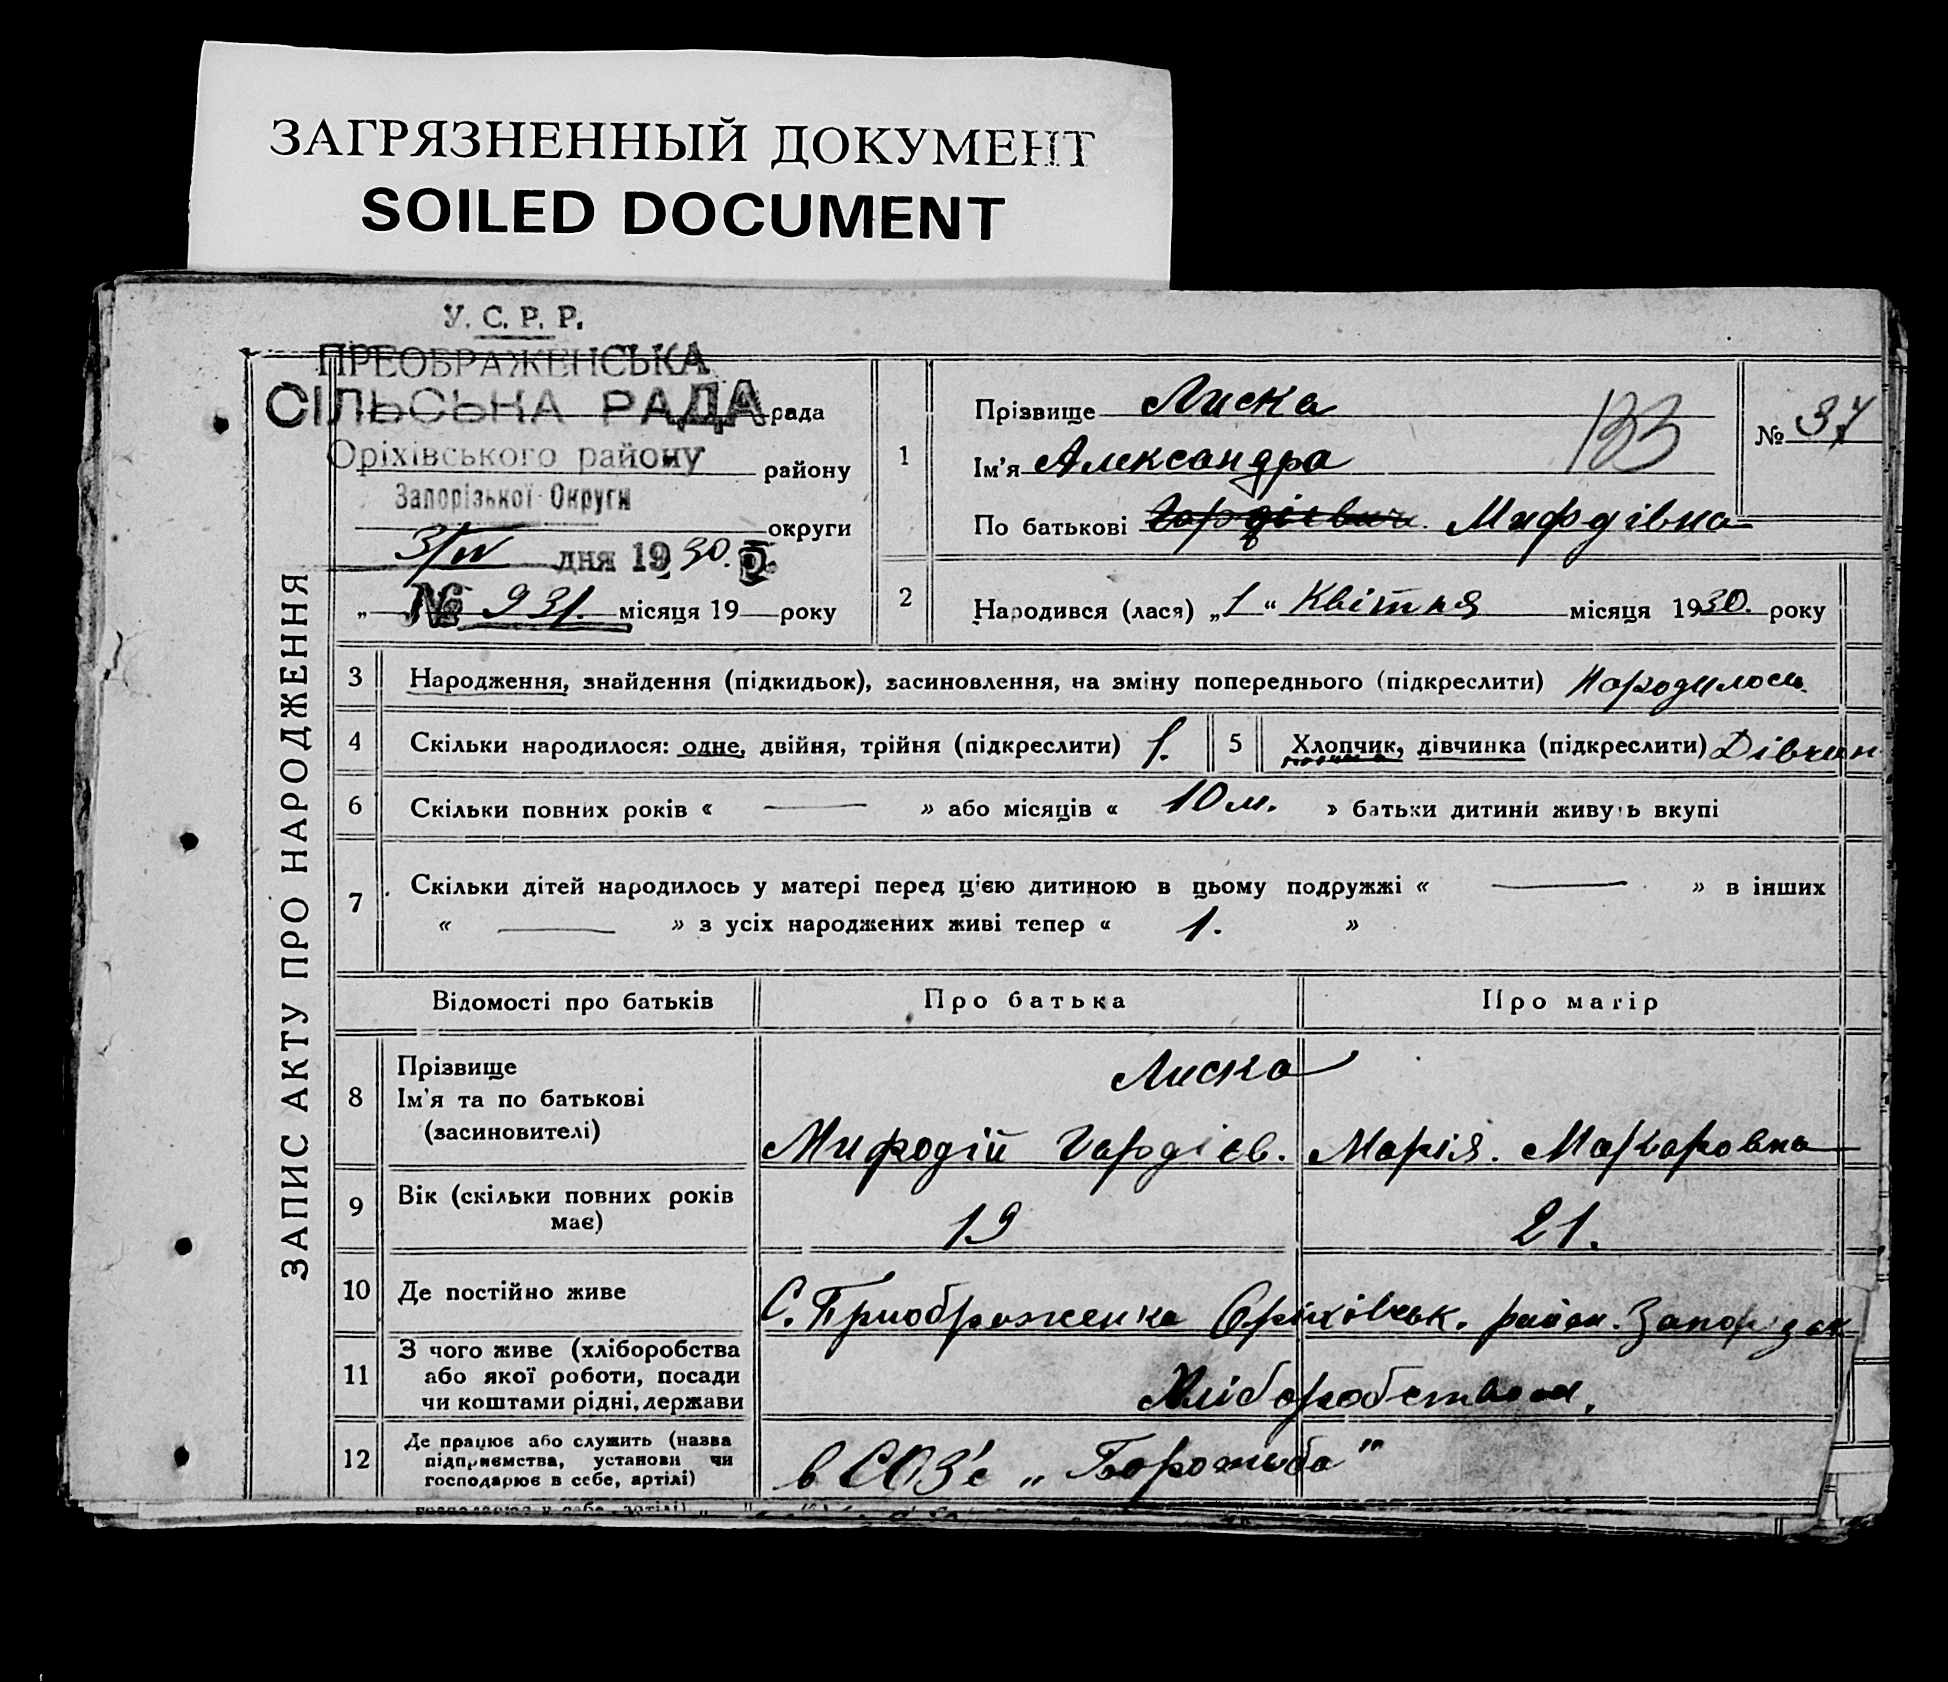 ЗАГРЯЗНЕННЫЙ ДОКУМЕНТ
SOILED DOCUMENT
У. С. Р. Р.
ПРЕОБРАЖЕНСЬКА
СІЛЬСЬКА РАДА рада
Оріхівського району району
Запорізької Округи
округи
3/IV дня 1930 р.
№ 931.
„ місяця 19 року
ЗАПИС АКТУ ПРО НАРОДЖЕННЯ
1
Прізвище Лиска
Ім'я Александра
133
По батькові Гордієвич Мифодівна
№ 37
2
Народився (лася) „1“ Квітня місяця 1930. року
3 Народження, знайдення (підкидьок), засиновлення, на зміну попереднього (підкреслити) Народилось
4 Скільки народилося: одне, двійня, трійня (підкреслити) 1.
5 Хлопчик, дівчинка (підкреслити) Дівчин
6 Скільки повних років « — » або місяців « 10 м. » батьки дитини живуть вкупі
7 Скільки дітей народилось у матері перед цією дитиною в цьому подружжі « — » в інших
« — » з усіх народжених живі тепер « 1. »
Відомості про батьків Про батька Про матір
8 Прізвище
Ім'я та по батькові
(засиновителі)
Лиска
Мифодій Гордієв. Марія. Макаровна
9 Вік (скільки повних років
має)
19 21.
10 Де постійно живе
С. Приображенка Оріхівськ. район. Запорізьк
11 З чого живе (хліборобства
або якої роботи, посади
чи коштами рідні, держави
Хліборобством.
12 Де працює або служить (назва
підприємства, установи чи
господарює в себе, артілі)
в СОЗ'є „Боротьба"